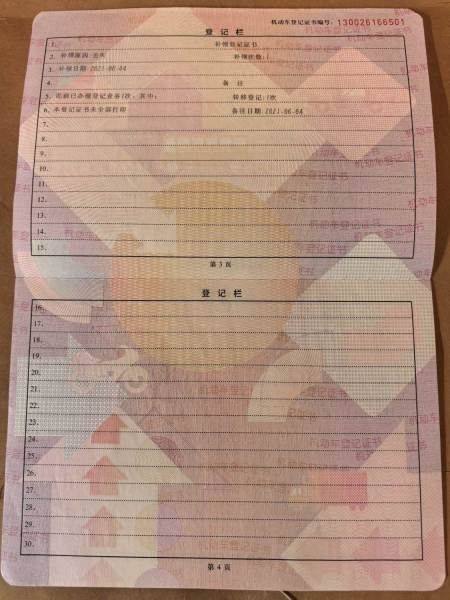 机动车登记证书编号：130026166501
登记栏
1. 补领登记证书
2. 补领原因：丢失 补领次数：1
3. 补领日期：2021-06-04
4. 备注
5. 此前已办理登记业务1次，其中： 转移登记：1次
6. 本登记证书未全部打印 备注日期：2021-06-04
7.
8.
9.
10.
11.
12.
13.
14.
15.
第3页
登记栏
16.
17.
18.
19.
20.
21.
22.
23.
24.
25.
26.
27.
28.
29.
30.
第4页